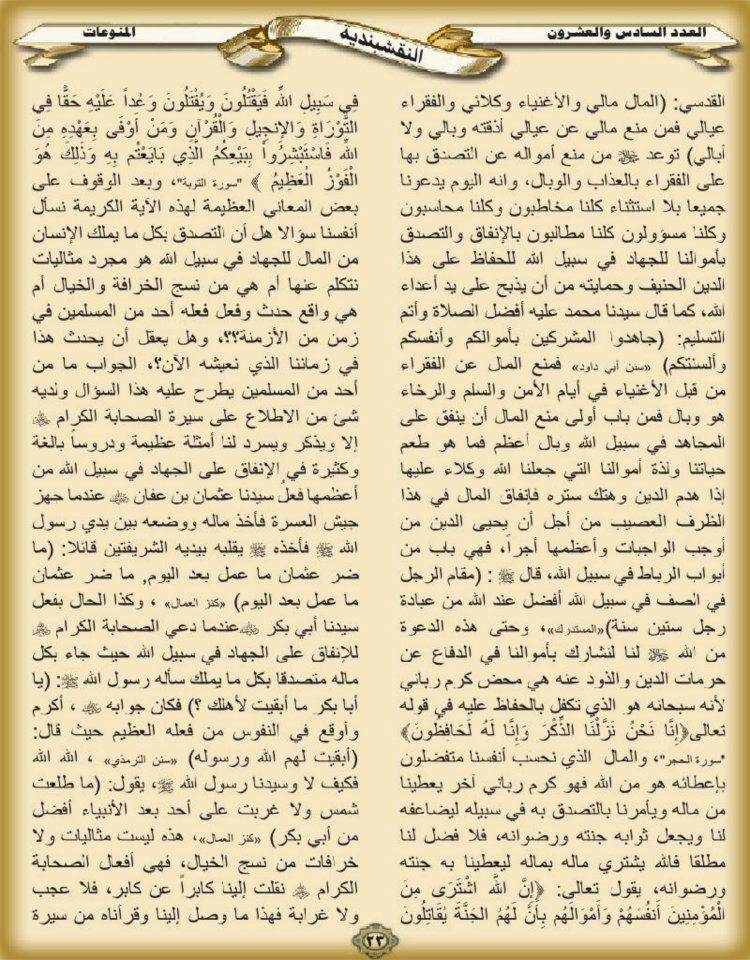 العدد السادس والعشرون
النقشبندية
المنوعات
القدسي: (المال مالي والأغنياء وكلائي والفقراء
عيالي فمن منع مالي عن عيالي أذقته وبالي ولا
أبالي) توعد ﷻ من منع أمواله عن التصدق بها
على الفقراء بالعذاب والوبال، وانه اليوم يدعونا
جميعا بلا استثناء كلنا مخاطبون وكلنا محاسبون
وكلنا مسؤولون كلنا مطالبون بالإنفاق والتصدق
بأموالنا للجهاد في سبيل الله للحفاظ على هذا
الدين الحنيف وحمايته من أن يذبح على يد أعداء
الله، كما قال سيدنا محمد عليه أفضل الصلاة وأتم
التسليم: (جاهدوا المشركين بأموالكم وأنفسكم
وألسنتكم) «سنن أبي داود» فمنع المال عن الفقراء
من قبل الأغنياء في أيام الأمن والسلم والرخاء
هو وبال فمن باب أولى منع المال أن ينفق على
المجاهد في سبيل الله وبال أعظم فما هو طعم
حياتنا ولذة أموالنا التي جعلنا الله وكلاء عليها
إذا هدم الدين وهتك ستره فإنفاق المال في هذا
الظرف العصيب من أجل أن يحيى الدين من
أوجب الواجبات وأعظمها أجراً، فهي باب من
أبواب الرباط في سبيل الله، قال ﷺ : (مقام الرجل
في الصف في سبيل الله أفضل عند الله من عبادة
رجل ستين سنة)«المستدرك»، وحتى هذه الدعوة
من الله ﷻ لنا لنشارك بأموالنا في الدفاع عن
حرمات الدين والذود عنه هي محض كرم رباني
لأنه سبحانه هو الذي تكفل بالحفاظ عليه في قوله
تعالى﴿إِنَّا نَحْنُ نَزَّلْنَا الذِّكْرَ وَإِنَّا لَهُ لَحَافِظُونَ﴾
"سورة الحجر"، والمال الذي نحسب أنفسنا متفضلون
بإعطائه هو من الله فهو كرم رباني أخر يعطينا
من ماله ويأمرنا بالتصدق به في سبيله ليضاعفه
لنا ويجعل ثوابه جنته ورضوانه، فلا فضل لنا
مطلقا فالله يشتري ماله بماله ليعطينا به جنته
ورضوانه، يقول تعالى: ﴿إِنَّ اللَّهَ اشْتَرَى مِنَ
الْمُؤْمِنِينَ أَنفُسَهُمْ وَأَمْوَالَهُم بِأَنَّ لَهُمُ الجَنَّةَ يُقَاتِلُونَ
فِي سَبِيلِ اللَّهِ فَيَقْتُلُونَ وَيُقْتَلُونَ وَعْداً عَلَيْهِ حَقًّا فِي
التَّوْرَاةِ وَالإِنجِيلِ وَالْقُرْآنِ وَمَنْ أَوْفَى بِعَهْدِهِ مِنَ
اللَّهِ فَاسْتَبْشِرُواْ بِبَيْعِكُمُ الَّذِي بَايَعْتُم بِهِ وَذَلِكَ هُوَ
الْفَوْزُ الْعَظِيمُ ﴾ "سورة التوبة"، وبعد الوقوف على
بعض المعاني العظيمة لهذه الآية الكريمة نسأل
أنفسنا سؤالا هل أن التصدق بكل ما يملك الإنسان
من المال للجهاد في سبيل الله هو مجرد مثاليات
نتكلم عنها أم هي من نسج الخرافة والخيال أم
هي واقع حدث وفعل فعله أحد من المسلمين في
زمن من الأزمنة؟؟، وهل يعقل أن يحدث هذا
في زماننا الذي نعيشه الآن؟، الجواب ما من
أحد من المسلمين يطرح عليه هذا السؤال ولديه
شئ من الاطلاع على سيرة الصحابة الكرام ﷺ
إلا ويذكر ويسرد لنا أمثلة عظيمة ودروساً بالغة
وكثيرة في الإنفاق على الجهاد في سبيل الله من
أعظمها فعلُ سيدنا عثمان بن عفان عندما جهز
جيش العسرة فأخذ ماله ووضعه بين يدي رسول
الله ﷺ فأخذه ﷺ يقلبه بيديه الشريفتين قائلا: (ما
ضر عثمان ما عمل بعد اليوم, ما ضر عثمان
ما عمل بعد اليوم) «كنز العمال» ، وكذا الحال بفعل
سيدنا أبي بكر عندما دعي الصحابة الكرام
للإنفاق على الجهاد في سبيل الله حيث جاء بكل
ماله متصدقا بكل ما يملك سأله رسول الله ﷺ: (يا
أبا بكر ما أبقيت لأهلك ؟) فكان جوابه ، أكرم
وأوقع في النفوس من فعله العظيم حيث قال:
(أبقيت لهم الله ورسوله) «سنن الترمذي» ، الله الله
فكيف لا وسيدنا رسول الله ﷺ، يقول: (ما طلعت
شمس ولا غربت على أحد بعد الأنبياء أفضل
من أبي بكر) «كنز العمال»، هذه ليست مثاليات ولا
خرافات من نسج الخيال، فهي أفعال الصحابة
الكرام نقلت إلينا كابراً عن كابر، فلا عجب
ولا غرابة فهذا ما وصل إلينا وقرأناه من سيرة
٢٣